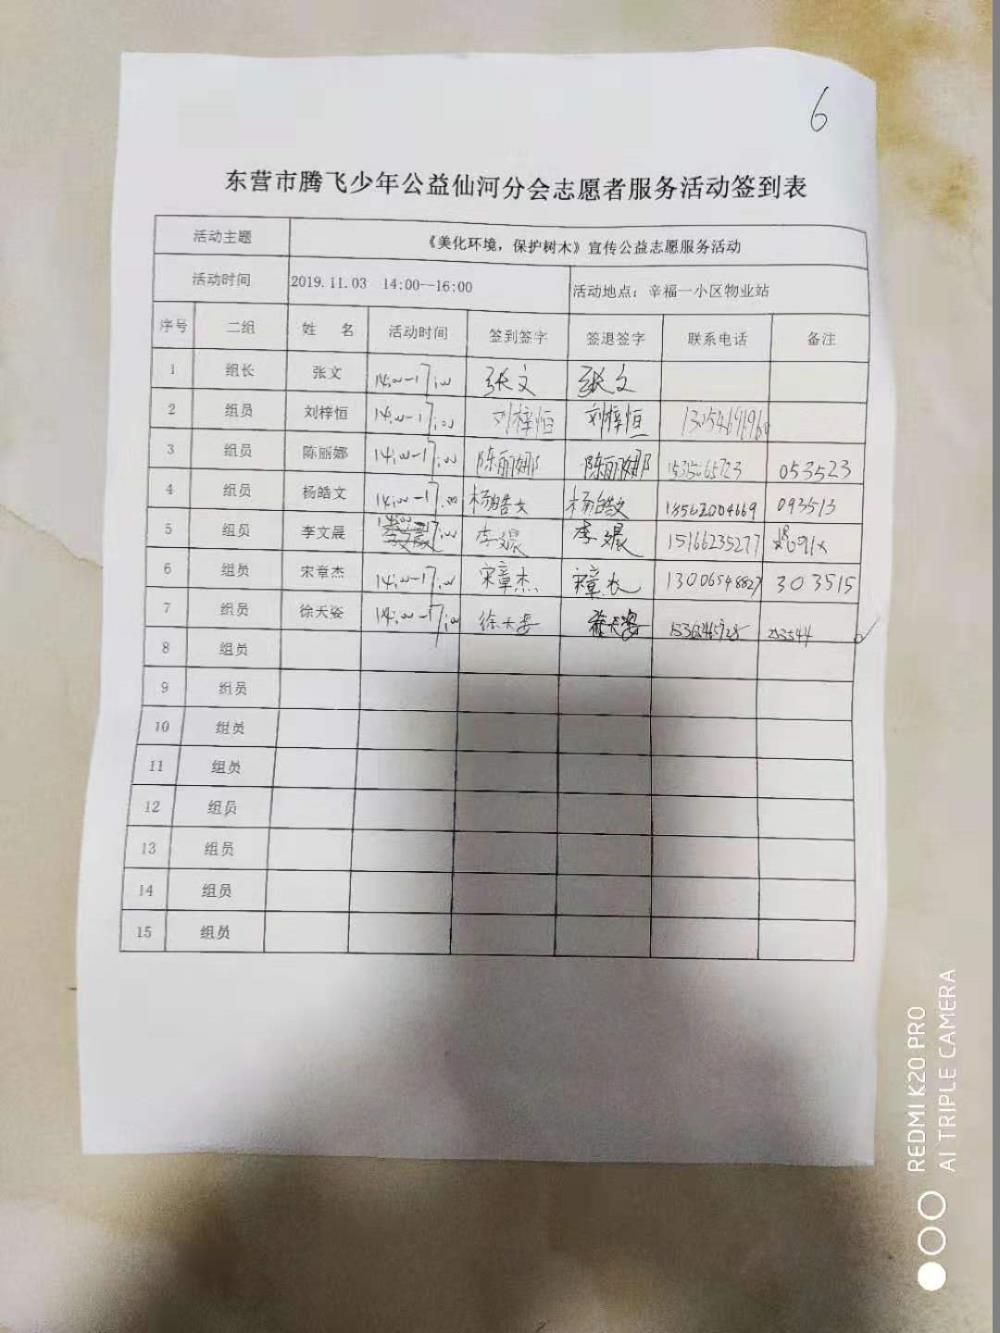 6
东营市腾飞少年公益仙河分会志愿者服务活动签到表
活动主题 《美化环境，保护树木》宣传公益志愿服务活动
活动时间 2019.11.03 14:00--16:00 活动地点：幸福一小区物业站
序号 二组 姓 名 活动时间 签到签字 签退签字 联系电话 备注
1 组长 张文 14:00-17:00 张文 张文
2 组员 刘梓恒 14:00-17:00 刘梓恒 刘梓恒
3 组员 陈丽娜 14:00-17:00 陈丽娜 陈丽娜 053523
4 组员 杨皓文 14:00-17:00 杨皓文 杨皓文 18562004669 093513
5 组员 李文晨 17:00 李文晨 李文晨 15166235277
6 组员 宋章杰 14:00-17:00 宋章杰 宋章杰 13006548827 303515
7 组员 徐天姿 14:00-17:00 徐天姿 徐天姿
8 组员
9 组员
10 组员
11 组员
12 组员
13 组员
14 组员
15 组员
REDMI K20 PRO
AI TRIPLE CAMERA